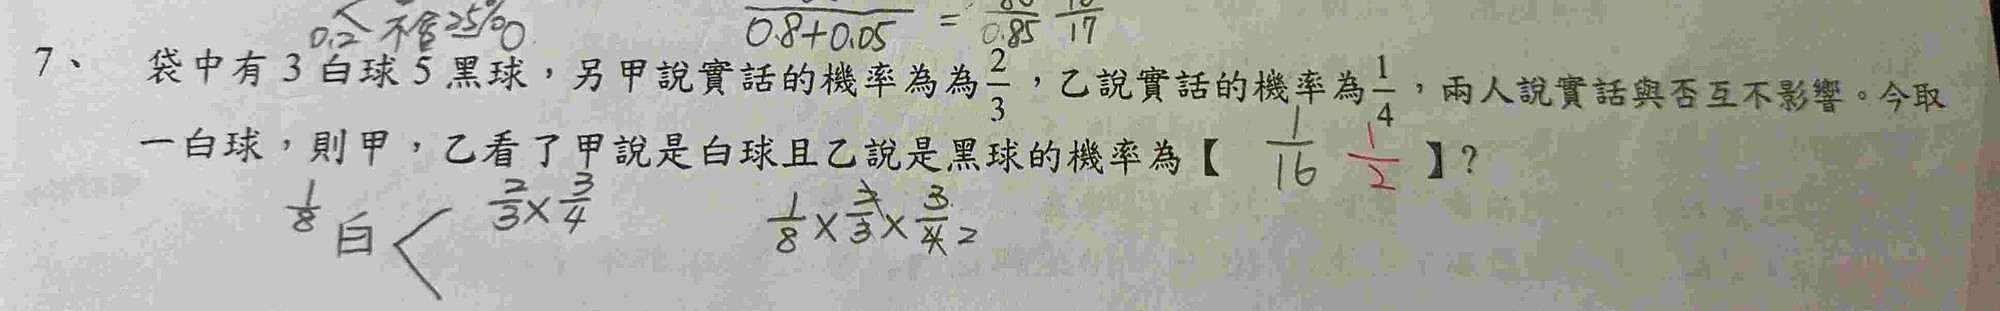 0.2 不含25%
0.8+0.05 = 0.85 17
7、 袋中有 3 白球 5 黑球，另甲說實話的機率為為 2/3，乙說實話的機率為 1/4，兩人說實話與否互不影響。今取
一白球，則甲，乙看了甲說是白球且乙說是黑球的機率為【 1/16 1/2 】?
1/8 白 2/3 × 3/4 1/8 × 2/3 × 3/4 2